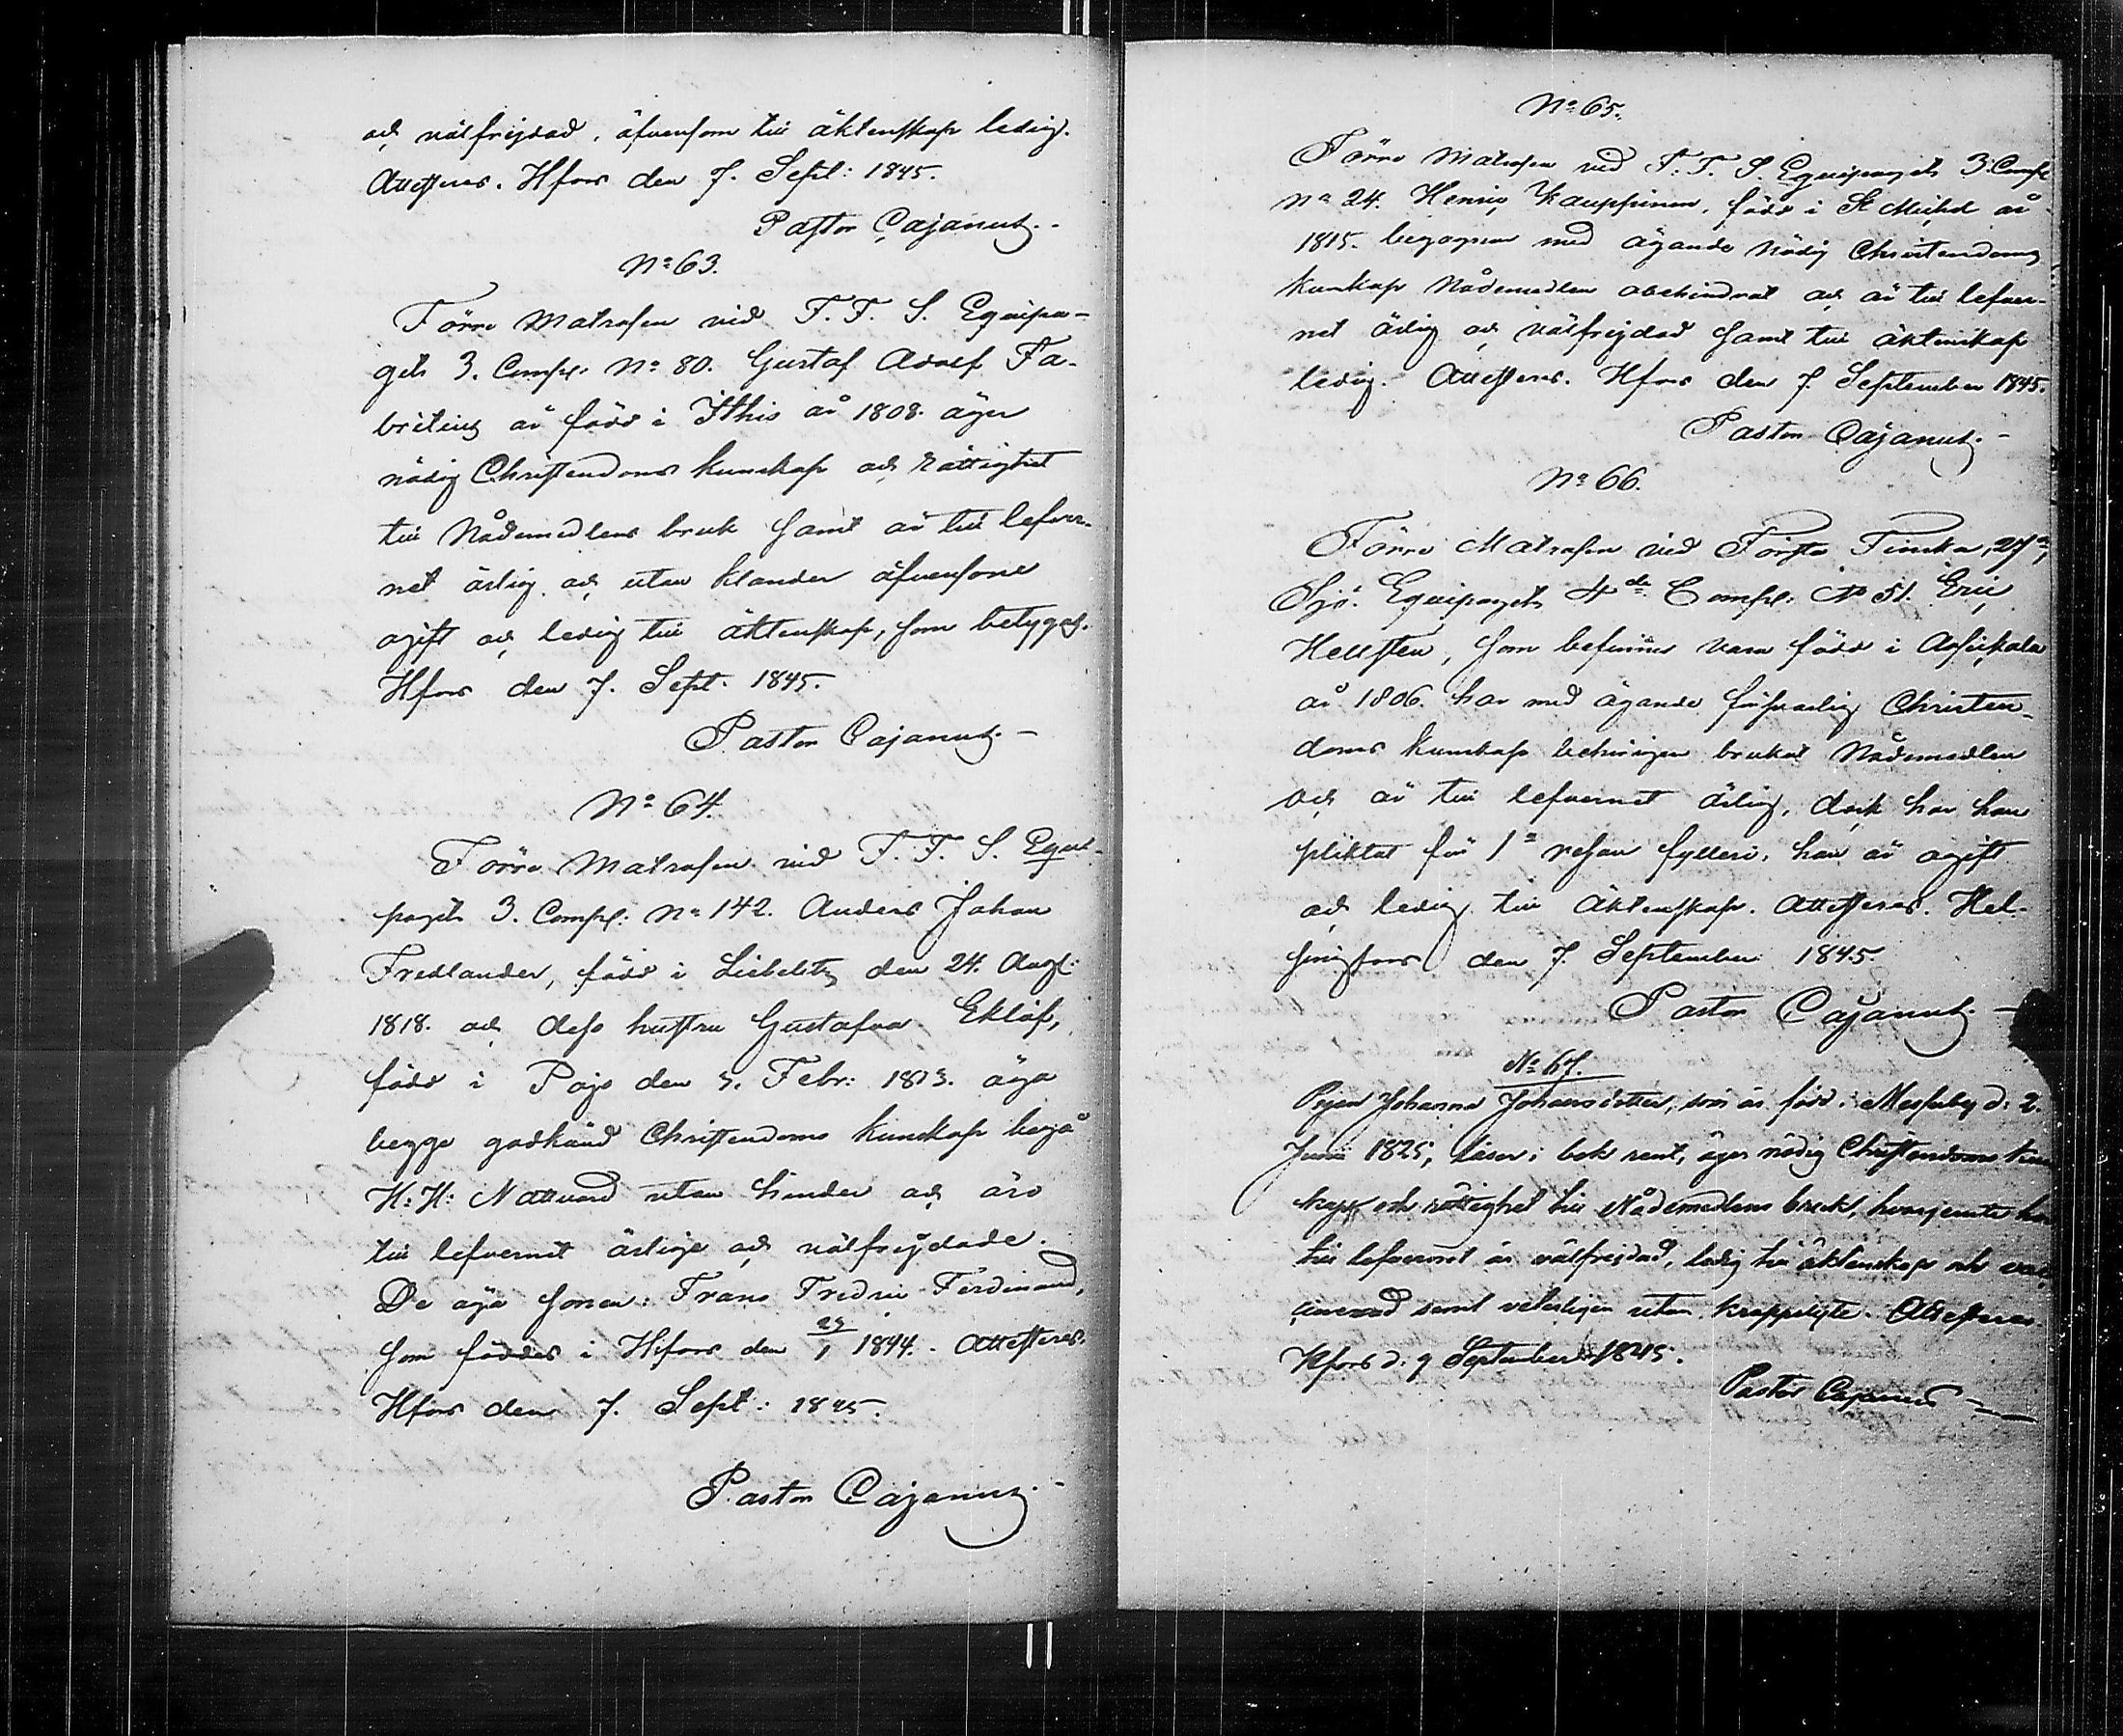 och välfrejdad, äfvensom till äktenskap ledig.
Attesteras. Hfors den 7. Sept: 1845.
Pastor Cajanus.-
No 63.
Förre Matrosen vid F. F. S. Equipa-
gets 3. Comp: No 80. Gustaf Adolf Fa-
britius är född i Ithis år 1808. äger
nödig Christendoms kunskap och rättighet
till Nådemedlens bruk samt är till lefver-
net ärlig och utan klander äfvensom
ogift och ledig till äktenskap, som betygas.
Hfors den 7. Sept. 1845.
Pastor Cajanus.-
No 64.
Förre Matrosen vid F. F. S. Equi-
pagets 3. Comp: No 142. Anders Johan
Fredlander, född i Liebelits den 24. Aug:
1818. och dess hustru Gustafva Eklöf,
född i Pojo den 5. Febr: 1813. äga
begge godkänd Christendoms kunskap begå
H: H: Nattvard utan hinder och äro
till lefvernet ärlige och välfrejdade.
De äga sonen: Frans Fredric Ferdinand,
som föddes i Hfors den 29/1 1844. Attesteras.
Hfors den 7. Sept: 1845.
Pastor Cajanus.-
No 65.
Förre Matrosen vid F. F. S. Equipagets 3. Comp:
No 24. Henric Kauppinen, född i St Michel år
1815. begagnar med ägande nödig Christendoms
kunskap Nådemedlen obehindrat och är till lefver-
net ärlig och välfrejdad samt till äktenskap
ledig. Attesteras. Hfors den 7. September 1845.
Pastor Cajanus.-
No 66.
Förre Matrosen vid Första Finska, 27de,
Sjö-Equipagets 4de Comp: No 51. Eric
Hellsten, som befinnes vara född i Asikkala
år 1806. har med ägande försvarlig Christen-
doms kunskap behörigen brukat Nådemedlen
och är till lefvernet ärlig, dock har han
pliktat för 1a resan fylleri, han är ogift
och ledig till Äktenskap. Attesteras. Hel-
singfors den 7. September 1845.
Pastor Cajanus.-
No 67.
Pigan Johanna Johansdotter, som är född i Messuby d. 2.
Junii 1825, läser i bok rent, äger nödig Christendoms kun
skap och rättighet till Nådemedlens bruk, hvarjemte hon
till lefvernet är välfrejdad, ledig till äktenskap och vac-
cinerad samt veterligen utan kroppslyte. Attesteras.
Hfors d. 9 September 1845.
Pastor Cajanus